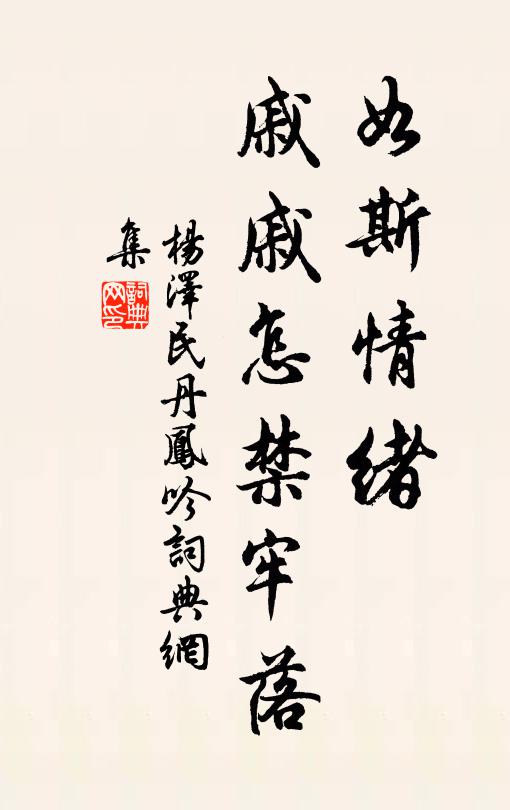 如斯情緒
戚戚怎禁牢落
楊澤民丹鳳吟詞典網
集
詞典
网印